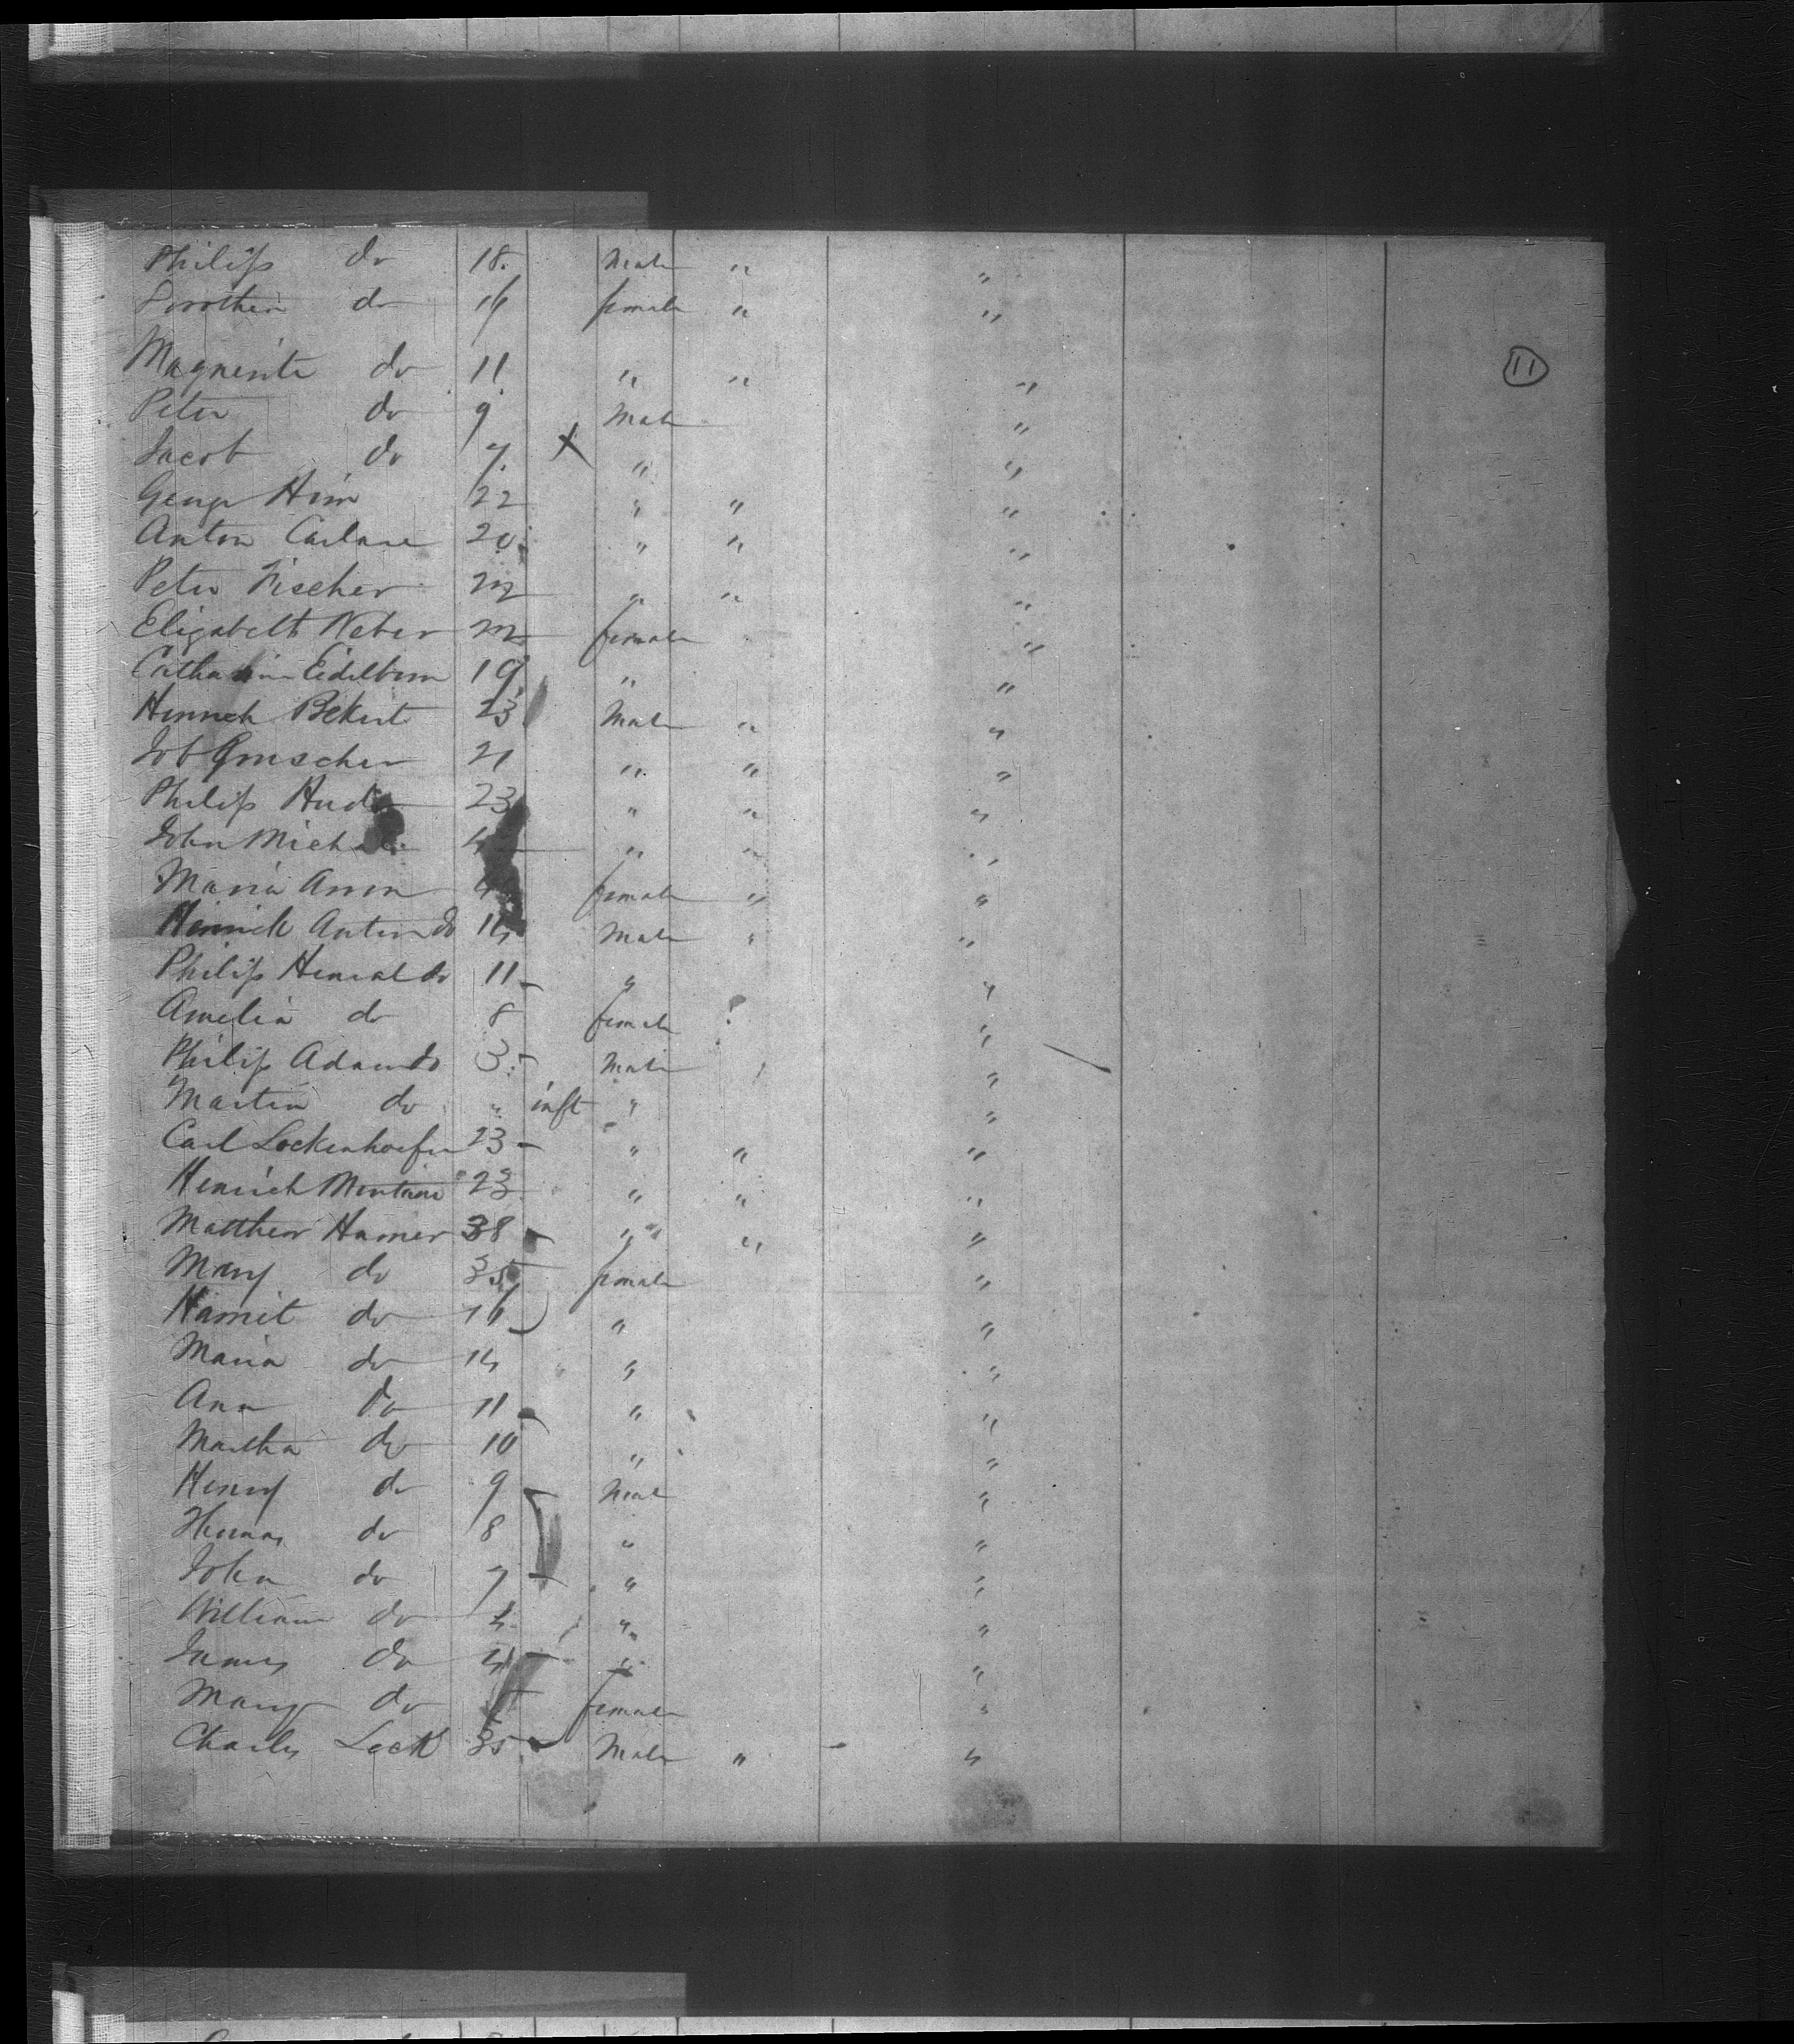 Philip do 18. Male " "
Dorothea do 16 female " "
Magrerite do 11 " " "
11
Peter do 9 Male "
Jacob do 7. X " "
George Heim 22 " " "
Anton Carlane 20 " " "
Peter Fischer 22 " " "
Elizabeth Weber 22 female "
Catharine Eidelborn 19 " "
Heinrich Bekert 23 Male " "
21 " " "
Philip 23 " " "
John " " "
Maria Anna female " "
Heinrich Anton do 14 Male " "
Philip do 11 " "
Amelia do 8 female "
Philip Adam do 3. Male "
Martin do " inft " "
Carl Lockenhoefer 23 " " "
Heinrich 23 " " "
Matthew Hamer 38 " " "
Mary do 35 female "
Harriet do 16 " "
Maria do 14 " "
Ann do 11 " "
Martha do 10 " "
Henry do 9 Male "
Thomas do 8 " "
John do 7 " "
William do " "
James do 4 " "
Mary do female "
Charles Lock 35 Male " "